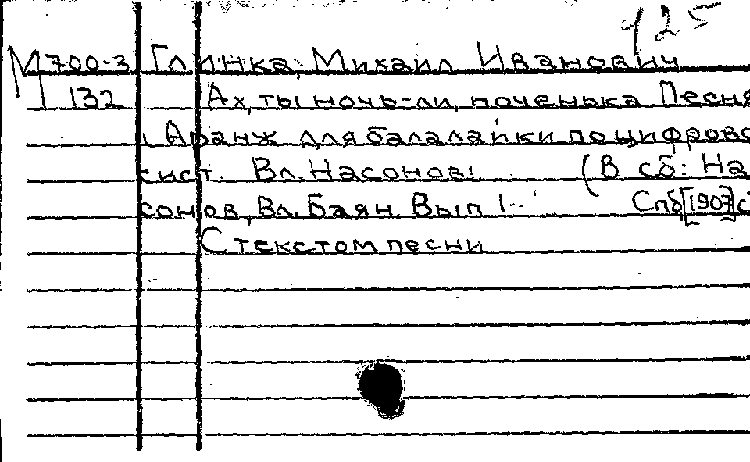 425
М 700-3 Глинка, Михаил Иванович
132 Ах, ты ночь-ли, ноченька Песня
Аранж для балалайки по цифров
сист. Вл. Насонов. (В сб: На
сонов, Вл. Баян. Вып 1. Спб [1907] с
С текстом песни